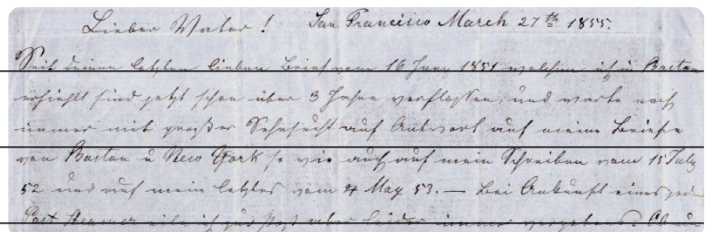 Lieber Vater! San Francisco March 27th 1855.
Seit deinen letzten lieben Brief vom 16 Juny 1851 welchen ich in Boston
erhielt sind jetzt schon über 3 Jahre verflossen, und warte noch
immer mit großer Sehnsucht auf Antwort auf meine Briefe
von Boston u New York so wie auch auf mein Schreiben vom 15 July
52 und auf mein letztes vom 4 May 53. — Bei Ankunft eines jeden
Post Steamer eile ich zur Post aber leider immer vergebens. Ob